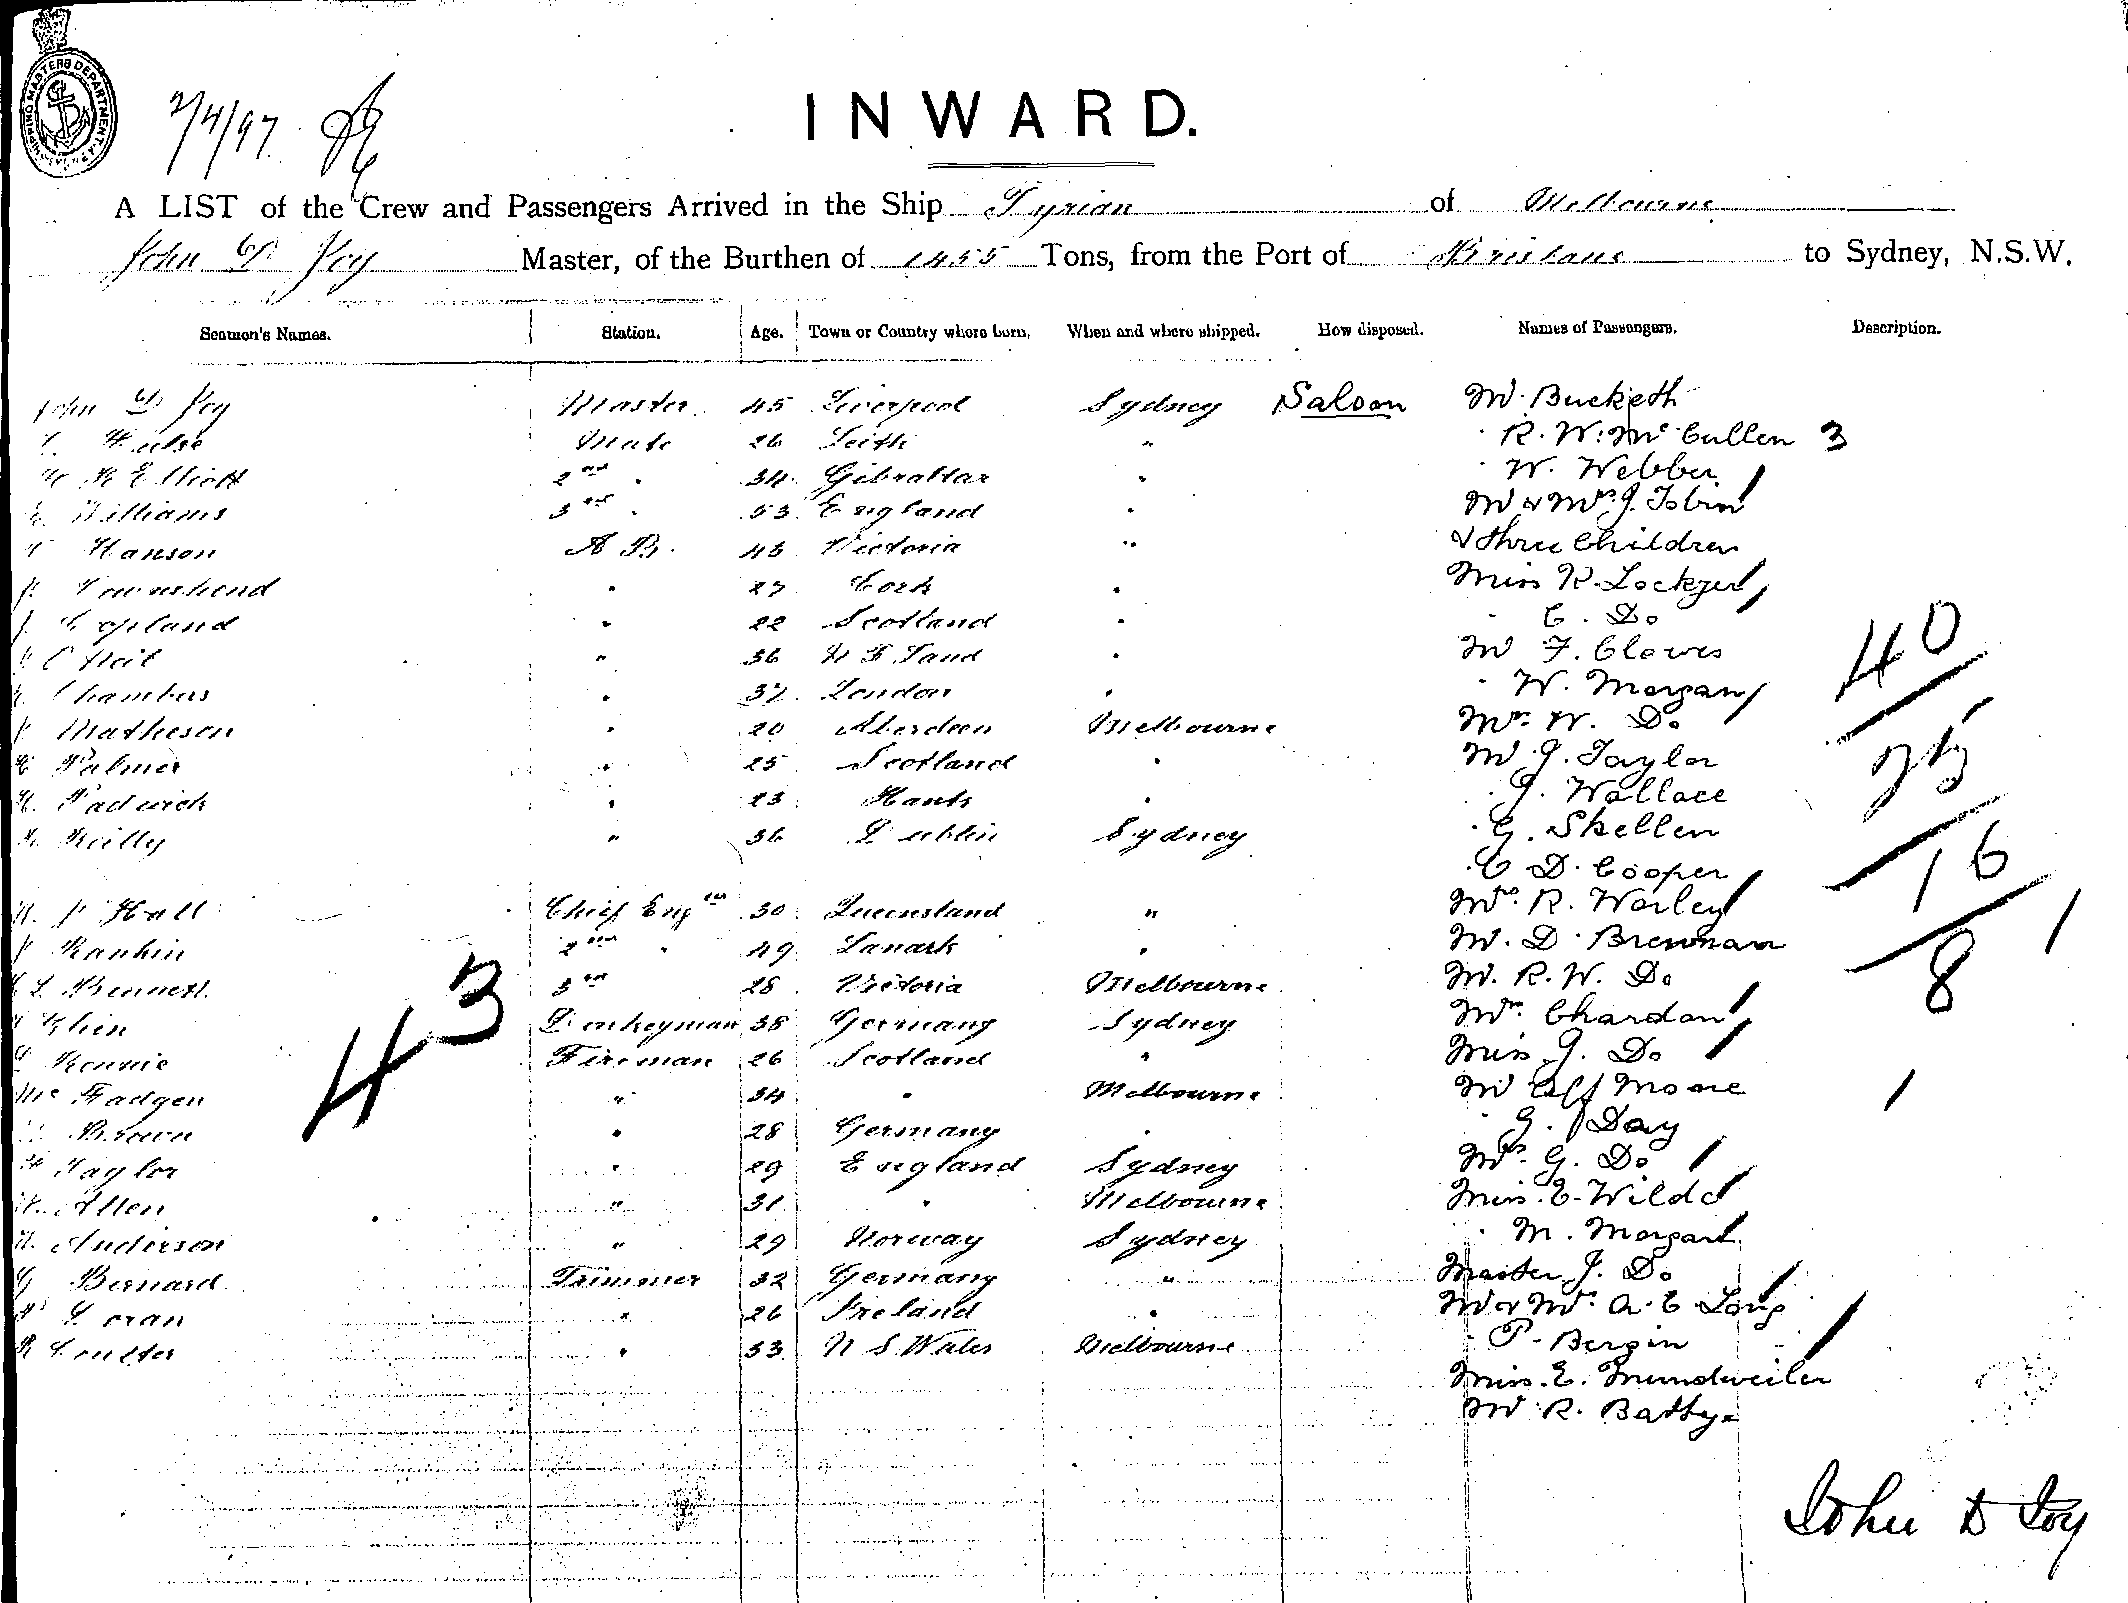 SHIPPING MASTERS DEPARTMENT
2/4/97
INWARD.
A LIST of the Crew and Passengers Arrived in the Ship Tyrian of Melbourne
John D Joy Master, of the Burthen of 1455 Tons, from the Port of Brisbane to Sydney, N.S.W.
Seamen's Names. Station. Age. Town or Country where born. When and where shipped. How disposed. Names of Passengers. Description.
John D Joy Master 45 Liverpool Sydney Saloon Mr Bucketh
Mate 26 Leith " " R. W. McCullen 3
Elliott 2nd " 34 Gibraltar " " W. Webber
Williams 3rd " 53 England " Mr & Mrs J. Tobin
Hanson A B. 43 Victoria " & three Children
Townshend " 27 Cork " Miss K. Lockyer
J. Copland " 22 Scotland " " C. Do
O'Neil " 36 N F Land " Mr F. Clowes
Chambers " 37 London " " W. Morgan
Matheson " 20 Aberdeen Melbourne Mrs W. Do
Palmer " 25 Scotland " Mr J. Taylor
Padwick " 23 Hants " " J. Wallace
Reilly " 36 Dublin Sydney " G. Skellen
" C D. Cooper
Hall Chief Engr 30 Queensland " Mrs R. Warley
Rankin 2nd " 49 Lanark " Mr. D. Brennan
Bennett 3rd 28 Victoria Melbourne Mr. R. W. Do
Klein Donkeyman 38 Germany Sydney Mrs Chardon
Rennie Fireman 26 Scotland " Miss J. Do
McFadgen " 34 " Melbourne Mr Alf Moore
Brown " 28 Germany " " G. Day
Taylor " 29 England Sydney Mrs G. Do
Allen " 31 " Melbourne Miss E. Wilde
Anderson " 29 Norway Sydney " M. Morgan
G Bernard Trimmer 32 Germany " Master J. Do
Doran " 26 Ireland " Mr & Mrs A. E. Long
R Coulter " 33 N S Wales Melbourne " P. Bergin
Miss E. Mundweiler
Mr R. Battye
43
40
25
16
8
John D Joy